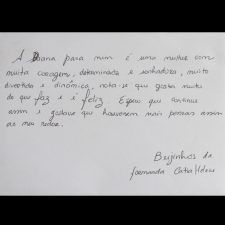 A Diana para mim é uma mulher com
muita coragem, determinada e sonhadora, muito
divertida e dinâmica, nota-se que gosta muito
do que faz e é feliz. Espero que continue
assim e gostava que houvessem mais pessoas assim
ao meu redor.
Beijinhos da
Fernanda Catia